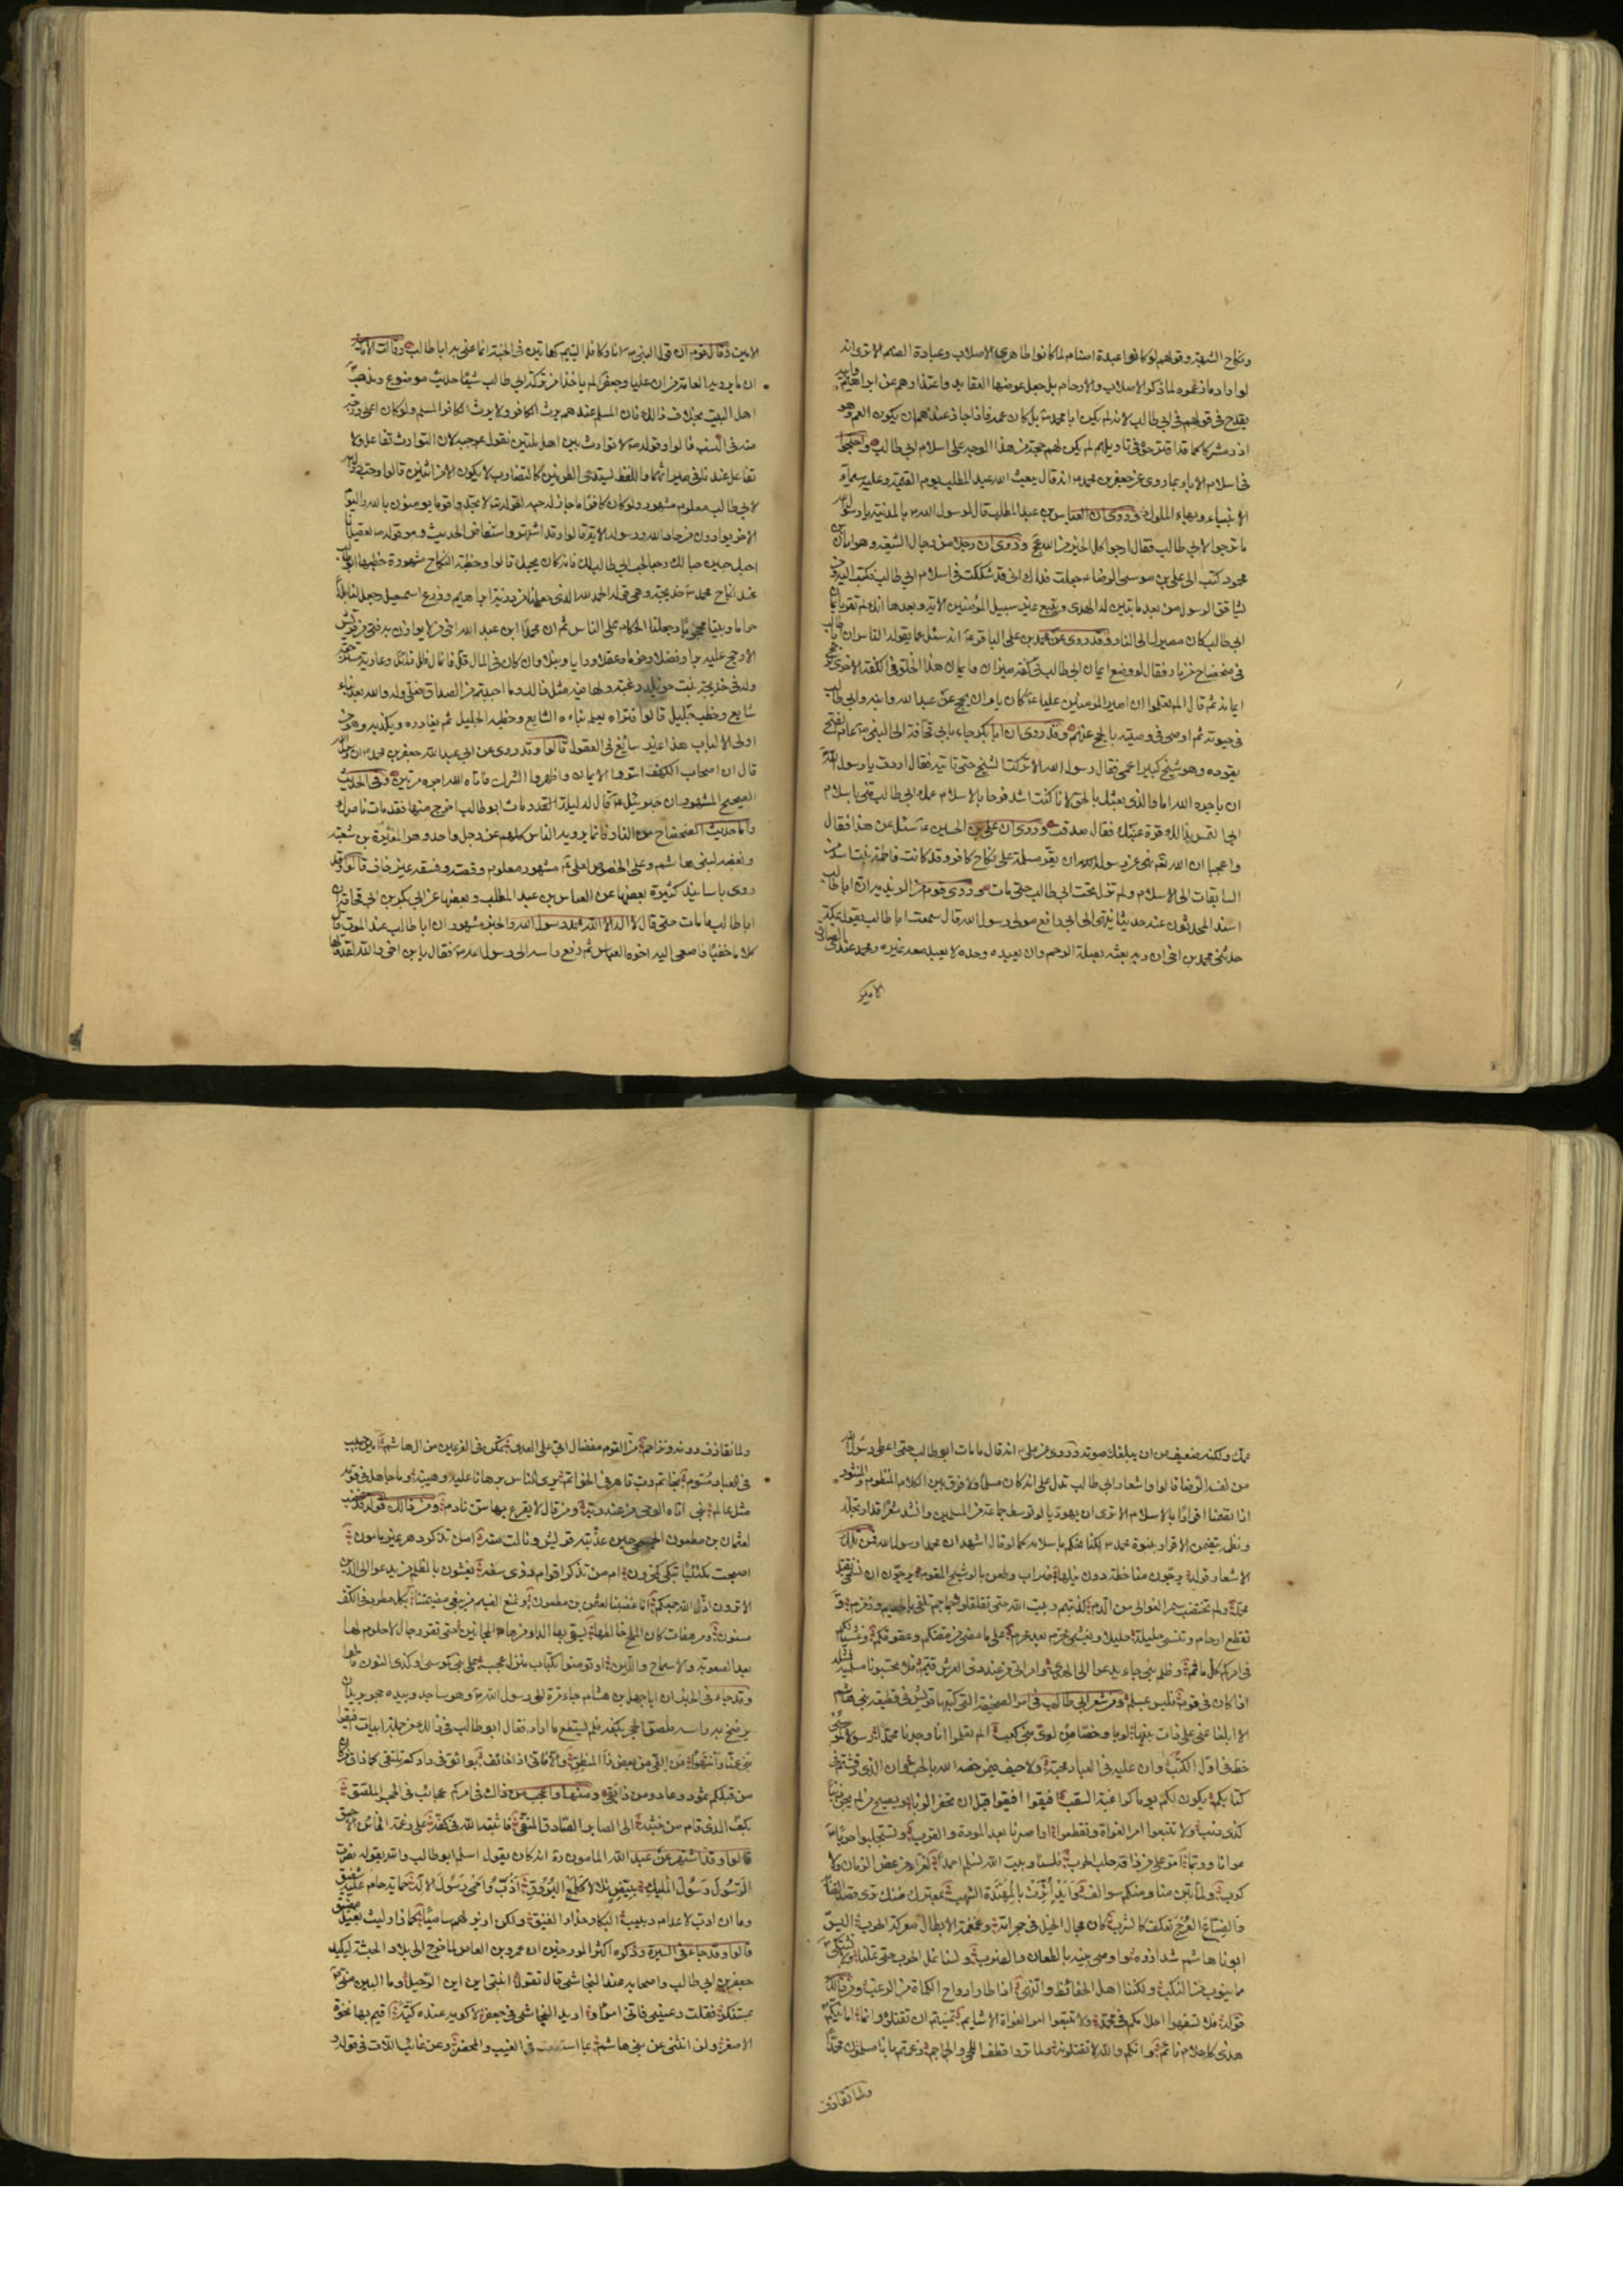 ونكاح الشبهة وقولهم لو كانوا عبدة اصنام لما كانوا طاهري الاصلاب وعبادة الصنم الا ترى انه
لو اراد ما زعموه لما ذكر الاصلاب والارحام بل جعل عوضها العقايد واعتذارهم عن ابراهيم وابيه
يقدح في قولهم في ابي طالب لانه لم يكن ابا محمد ص بل كان عمه فاذا جاز عندهم ان يكون العم وهو
آزر مشركا كما قد اقترحوه في تاويلهم لم يكن لهم حجة من هذا الوجه على اسلام ابي طالب واحتجوا
في اسلام الاباء بما روي عن جعفر بن محمد ع انه قال يبعث الله عبد المطلب يوم القيمة وعليه سيماء
الانبياء وبهاء الملوك وروي ان العباس بن عبد المطلب قال لرسول الله ص بالمدينة يا رسول الله
ما ترجوا لابي طالب فقال ارجوا كل الخير من الله عج وروي ان رجلا من رجال الشيعة وهو ابان بن
محمود كتب الى علي بن موسى الرضا ع جعلت فداك اني قد شككت في اسلام ابي طالب فكتب اليه ومن
يشاقق الرسول من بعد ما تبين له الهدى ويتبع غير سبيل المؤمنين الاية وبعدها انك ان لم تقر بايمان
ابي طالب كان مصيرك الى النار وقد روي عن محمد بن علي الباقر ع انه سئل عما يقوله الناس ان ابا طالب
في ضحضاح من نار فقال لو وضع ايمان ابي طالب في كفة ميزان وايمان هذا الخلق في الكفة الاخرى لرجح
ايمانه ثم قال الم تعلموا ان امير المؤمنين عليا ع كان يامر ان يحج عن عبد الله وابنه وابي طالب
في حيوته ثم اوصى في وصيته بالحج عنهم وقد روي ان ابا بكر جاء بابي قحافة الى النبي ص عام الفتح
يقوده وهو شيخ كبير اعمى فقال رسول الله الا تركت الشيخ حتى ناتيه فقال اردت يا رسول الله
ان ياجره الله اما والذي بعثك بالحق لانا كنت اشد فرحا بالاسلام عمك ابي طالب مني باسلام
ابي التمس بذلك قرة عينك فقال صدقت وروي ان علي بن الحسين ع سئل عن هذا فقال
واعجبا ان الله تعالى نهى رسوله ان يقر مسلمة على نكاح كافر وقد كانت فاطمة بنت اسد من
السابقات الى الاسلام ولم تزل تحت ابي طالب حتى مات وروى قوم من الزيدية ان ابا طالب
اسند المحدثون عنه حديثا ينتهي الى ابي رافع مولى رسول الله قال سمعت ابا طالب يقول بمكة
حدثني محمد بن اخي ان ربه بعثه بصلة الرحم وان يعبده وحده لا يعبد معه غيره ومحمد عندي الصادق
الامين
الامين وقال قوم ان قول النبي ص انا وكافل اليتيم كهاتين في الجنة انما عني به ابا طالب وقالت الامامية
ان ما يرويه العامة من ان عليا وجعفرا لم ياخذا من تركة ابي طالب شيئا حديث موضوع ومذهب
اهل البيت بخلاف ذلك فان المسلم عندهم يرث الكافر ولا يرث الكافر المسلم ولو كان اعلى درجة
منه في النسب قالوا وقوله ص لا توارث بين اهل ملتين نقول بموجبه لان التوارث تفاعل ولا
تفاعل عندنا في ميراثهما واللفظ يستدعي الطرفين كالتضارب لا يكون الا من اثنين قالوا وحب رسول الله
لابي طالب معلوم مشهور ولو كان كافرا ما جاز له حبه لقوله تع لا تجد قوما يؤمنون بالله واليوم
الاخر يوادون من حاد الله ورسوله الاية قالوا وقد اشتهر واستفاض الحديث وهو قوله ص لعقيل انا
احبك حبين حبا لك وحبا لحب ابي طالب لك فانه كان يحبك قالوا وخطبة النكاح مشهورة خطبها ابو طالب
عند نكاح محمد ص خديجة وهي قوله الحمد لله الذي جعلنا من ذرية ابراهيم وزرع اسمعيل وجعل لنا بلدا
حراما وبيتا محجوجا وجعلنا الحكام على الناس ثم ان محمدا ابن عبد الله اخي من لا يوازن به فتى من قريش
الا رجح عليه برا وفضلا وحزما وعقلا ورايا ونبلا وان كان في المال قل فانما المال ظل زائل وعارية مسترجعة
وله في خديجة بنت خويلد رغبة ولها فيه مثل ذلك وما احببتم من الصداق فعلي وله والله بعد نباء
شايع وخطب جليل قالوا فتراه يعلم نباءه الشايع وخطبه الجليل ثم يعانده ويكذبه وهو من
اولي الالباب هذا غير سائغ في العقول قالوا وقد روي عن ابي عبد الله جعفر بن محمد ان رسول الله
قال ان اصحاب الكهف اسروا الايمان واظهروا الشرك فاتاه الله اجره مرتين وفي الحديث
الصحيح المشهور ان جبرئيل ع قال له ليلة الفقد مات ابو طالب اخرج منها فقد مات ناصرك
واما حديث الضحضاح من النار فانما يرويه الناس كلهم عن رجل واحد وهو المغيرة بن شعبة
وبغضه لبني هاشم وعلى الخصوص لعلي ع مشهور معلوم وقصته وفسقه غير خاف قالوا وقد
روي باسانيد كثيرة بعضها عن العباس بن عبد المطلب وبعضها عن ابي بكر بن ابي قحافة ان
ابا طالب ما مات حتى قال لا اله الا الله محمد رسول الله والخبر مشهور ان ابا طالب عند الموت قال
كلاما خفيا فاصغى اليه اخوه العباس ثم رفع راسه الى رسول الله ص فقال يا بن اخي والله لقد قالها
عمك ولكنه ضعف عن ان يبلغك صوته وروي عن علي ع انه قال ما مات ابو طالب حتى اعطى رسول الله
من نفسه الرضا قالوا واشعار ابي طالب تدل على انه كان مسلما ولا فرق بين الكلام المنظوم والمنثور
اذا تضمنا اقرارا بالاسلام الا ترى ان يهوديا لو توسط جماعة من المسلمين وانشد شعرا قد ارتجله
ونظمه يتضمن الاقرار بنبوة محمد ص لكنا نحكم باسلامه كما لو قال اشهد ان محمدا رسول الله فمن تلك
الاشعار قوله يرجون منا خطة دون نيلها ضراب وطعن بالوشيج المقوم يرجون ان نسخى بقتل
محمد ولم تختضب سمر العوالي من الدم كذبتم وبيت الله حتى تفلقوا جماجم تلقى بالحطيم وزمزم و
تقطع ارحام وتنسى حليلة حليلا ويغشى محرم بعد محرم على ما مضى من مقتكم وعقوقكم وغشيانكم
في امركم كل ماثم وظلم نبي جاء يدعو الى الهدى وامر اتى من عند ذي العرش قيم فلا تحسبونا مسلميه ومثله
اذا كان في قوم فليس بمسلم ومن شعر ابي طالب في امر الصحيفة التي كتبها قريش في قطيعة بني هاشم
الا ابلغا عني على ذات بينها لويا وخصا من لوي بني كعب الم تعلموا انا وجدنا محمدا رسولا كموسى
خط في اول الكتب وان عليه في العباد محبة ولا حيف فيمن خصه الله بالحب وان الذي رقشتم في
كتابكم يكون لكم يوما كراغية السقب افيقوا افيقوا قبل ان تحفر الزبى ويصبح من لم يجن ذنبا
كذي ذنب ولا تتبعوا امر الغواة وتقطعوا اواصرنا بعد المودة والقرب وتستجلبوا حربا
عوانا وربما امر على من ذاقه حلب الحرب فلسنا وبيت الله نسلم احمدا لعزاء من عض الزمان ولا
كرب ولما تبن منا ومنكم سوالف وايد اترت بالمهندة الشهب بمعترك ضنك ترى قصد القنا
والضباع العرج تعكف كالشرب كان مجال الخيل في حجراته وغمغمة الابطال معركة الحرب اليس
ابونا هاشم شد ازره واوصى بنيه بالطعان والضرب ولسنا نمل الحرب حتى تملنا ولا نشتكي
مما ينوب من النكب ولكننا اهل الحفائظ والنهى اذا طار ارواح الكماة من الرعب ومن ذلك
قوله فلا تسفهوا احلامكم في محمد ولا تتبعوا امر الغواة الاشايم تمنيتم ان تقتلوه وانما امانيكم
هذي كاحلام نائم وانكم والله لا تقتلونه ولما تروا قطف اللحى والجماجم زعمتم بانا مسلمون محمدا
ولما نقاذف
ولما نقاذف دونه ونزاحم من القوم مفضال ابي على العدى تمكن في الفرعين من ال هاشم امين حبيب
في العباد مسوم بخاتم رب قاهر في الخواتم يرى الناس برهانا عليه وهيبة وما جاهل في قومه
مثل عالم نبي اتاه الوحي من عند ربه ومن قال لا يقرع بها سن نادم ومن ذلك قوله قد غضب
لعثمان بن مظعون الجمحي حين عذبته قريش ونالت منه امن تذكر دهر غير مامون
اصبحت مكتئبا تبكي كمحزون ام من تذكر اقوام ذوي سفه يغشون بالظلم من يدعو الى الدين
الا ترون اذل الله جمعكم انا غضبنا لعثمن بن مظعون ونمنع الضيم من يبغي مضيمتنا بكل مطرد في الكف
مسنون ومرهفات كان الملح خالطها يشفى بها الداء من هام المجانين حتى تقر رجال لا حلوم لها
بعد الصعوبة والاسماح واللين او تومنوا بكتاب منزل عجب على نبي كموسى او كذي النون قالوا
وقد جاء في الخبر ان ابا جهل بن هشام جاء مرة الى رسول الله ص وهو ساجد وبيده حجر يريد ان
يرضخ به راسه فلصق الحجر بكفه فلم يستطع ما اراد فقال ابو طالب في ذلك من جملة ابيات افيقوا
بني عمنا وانتهوا عن الغي من بعض ذا المنطق والا فاني اذا خائف بوائق في داركم تلتقي كما ذاق من
من قبلكم ثمود وعاد ومن ذا بقي ومنها واعجب من ذاك في امركم عجائب في الحجر الملصق
بكف الذي قام من خبثه الى الصابر الصادق المتقي فاثبته الله في كفه على رغمة الخائن الاحمق
قالوا وقد اشتهر عن عبد الله المامون ره انه كان يقول اسلم ابو طالب والله بقوله نصرت
الرسول رسول المليك ببيض تلالا كلمع البروق اذب واحمي رسول الاله حماية حام عليه شفيق
وما ان ادب لاعدائه دبيب البكار حذار الفنيق ولكن ازير لهم ساميا كما زار ليث بغيل مضيق
قالوا وقد جاء في السيرة وذكره اكثر المورخين ان عمرو بن العاص لما خرج الى بلاد الحبشة ليكيد
جعفر بن ابي طالب واصحابه عند النجاشي قال تقول ابنتي اين اين الرحيل وما البين مني
بمستنكر فقلت دعيني فاني امرؤ اريد النجاشي في جعفر لاكويه عنده كية اقيم بها نخوة
الاصعر ولن انثني عن بني هاشم بما استطعت في الغيب والمحضر وعن عائب اللات في قوله و